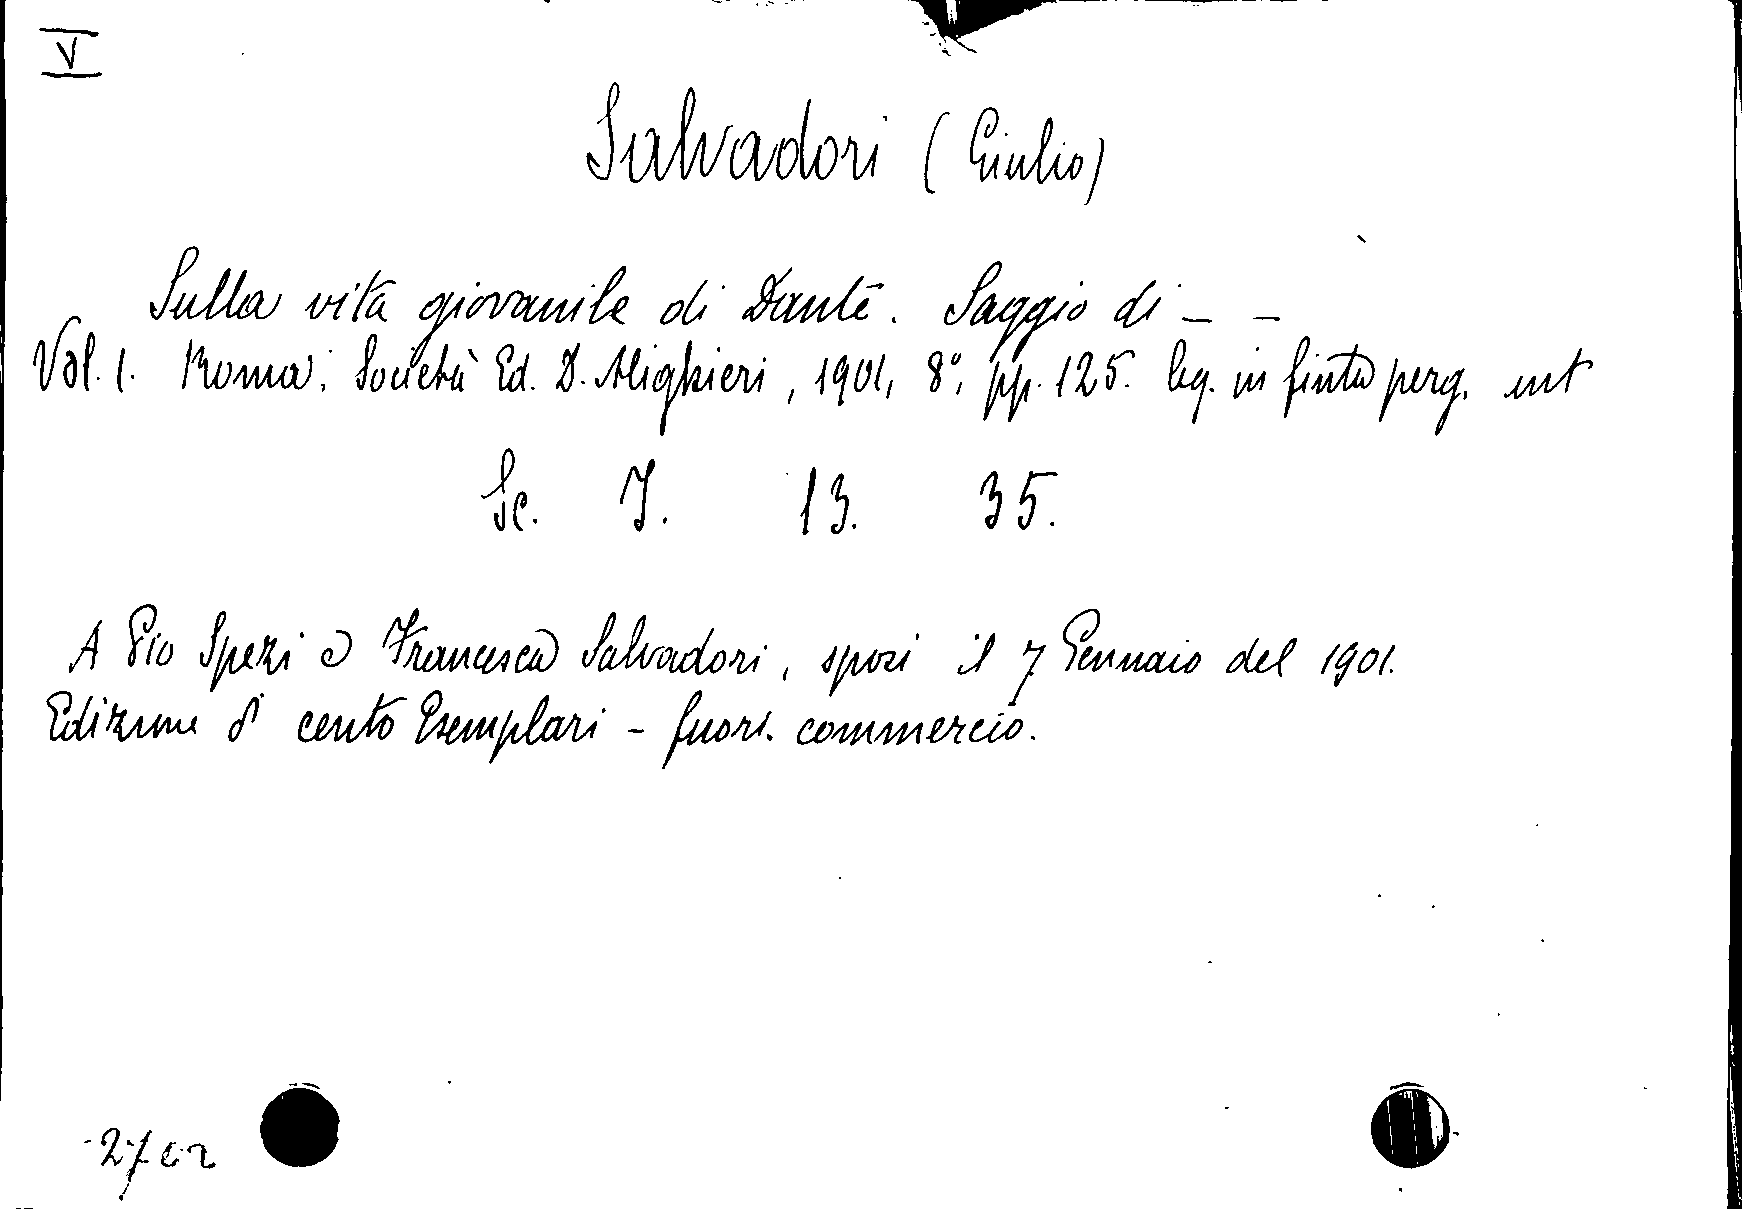 V
Salvadori (Giulio)
Sulla vita giovanile di Dante. Saggio di _ _
Vol. 1. Roma, Società Ed. D. Alighieri, 1901, 8°, pp. 125. leg. in finta perg. int
Sc. I. 13. 35.
A Pio Spezi e Francesca Salvadori, sposi il 7 Gennaio del 1901.
Edizione di cento Esemplari - fuori commercio.
2702